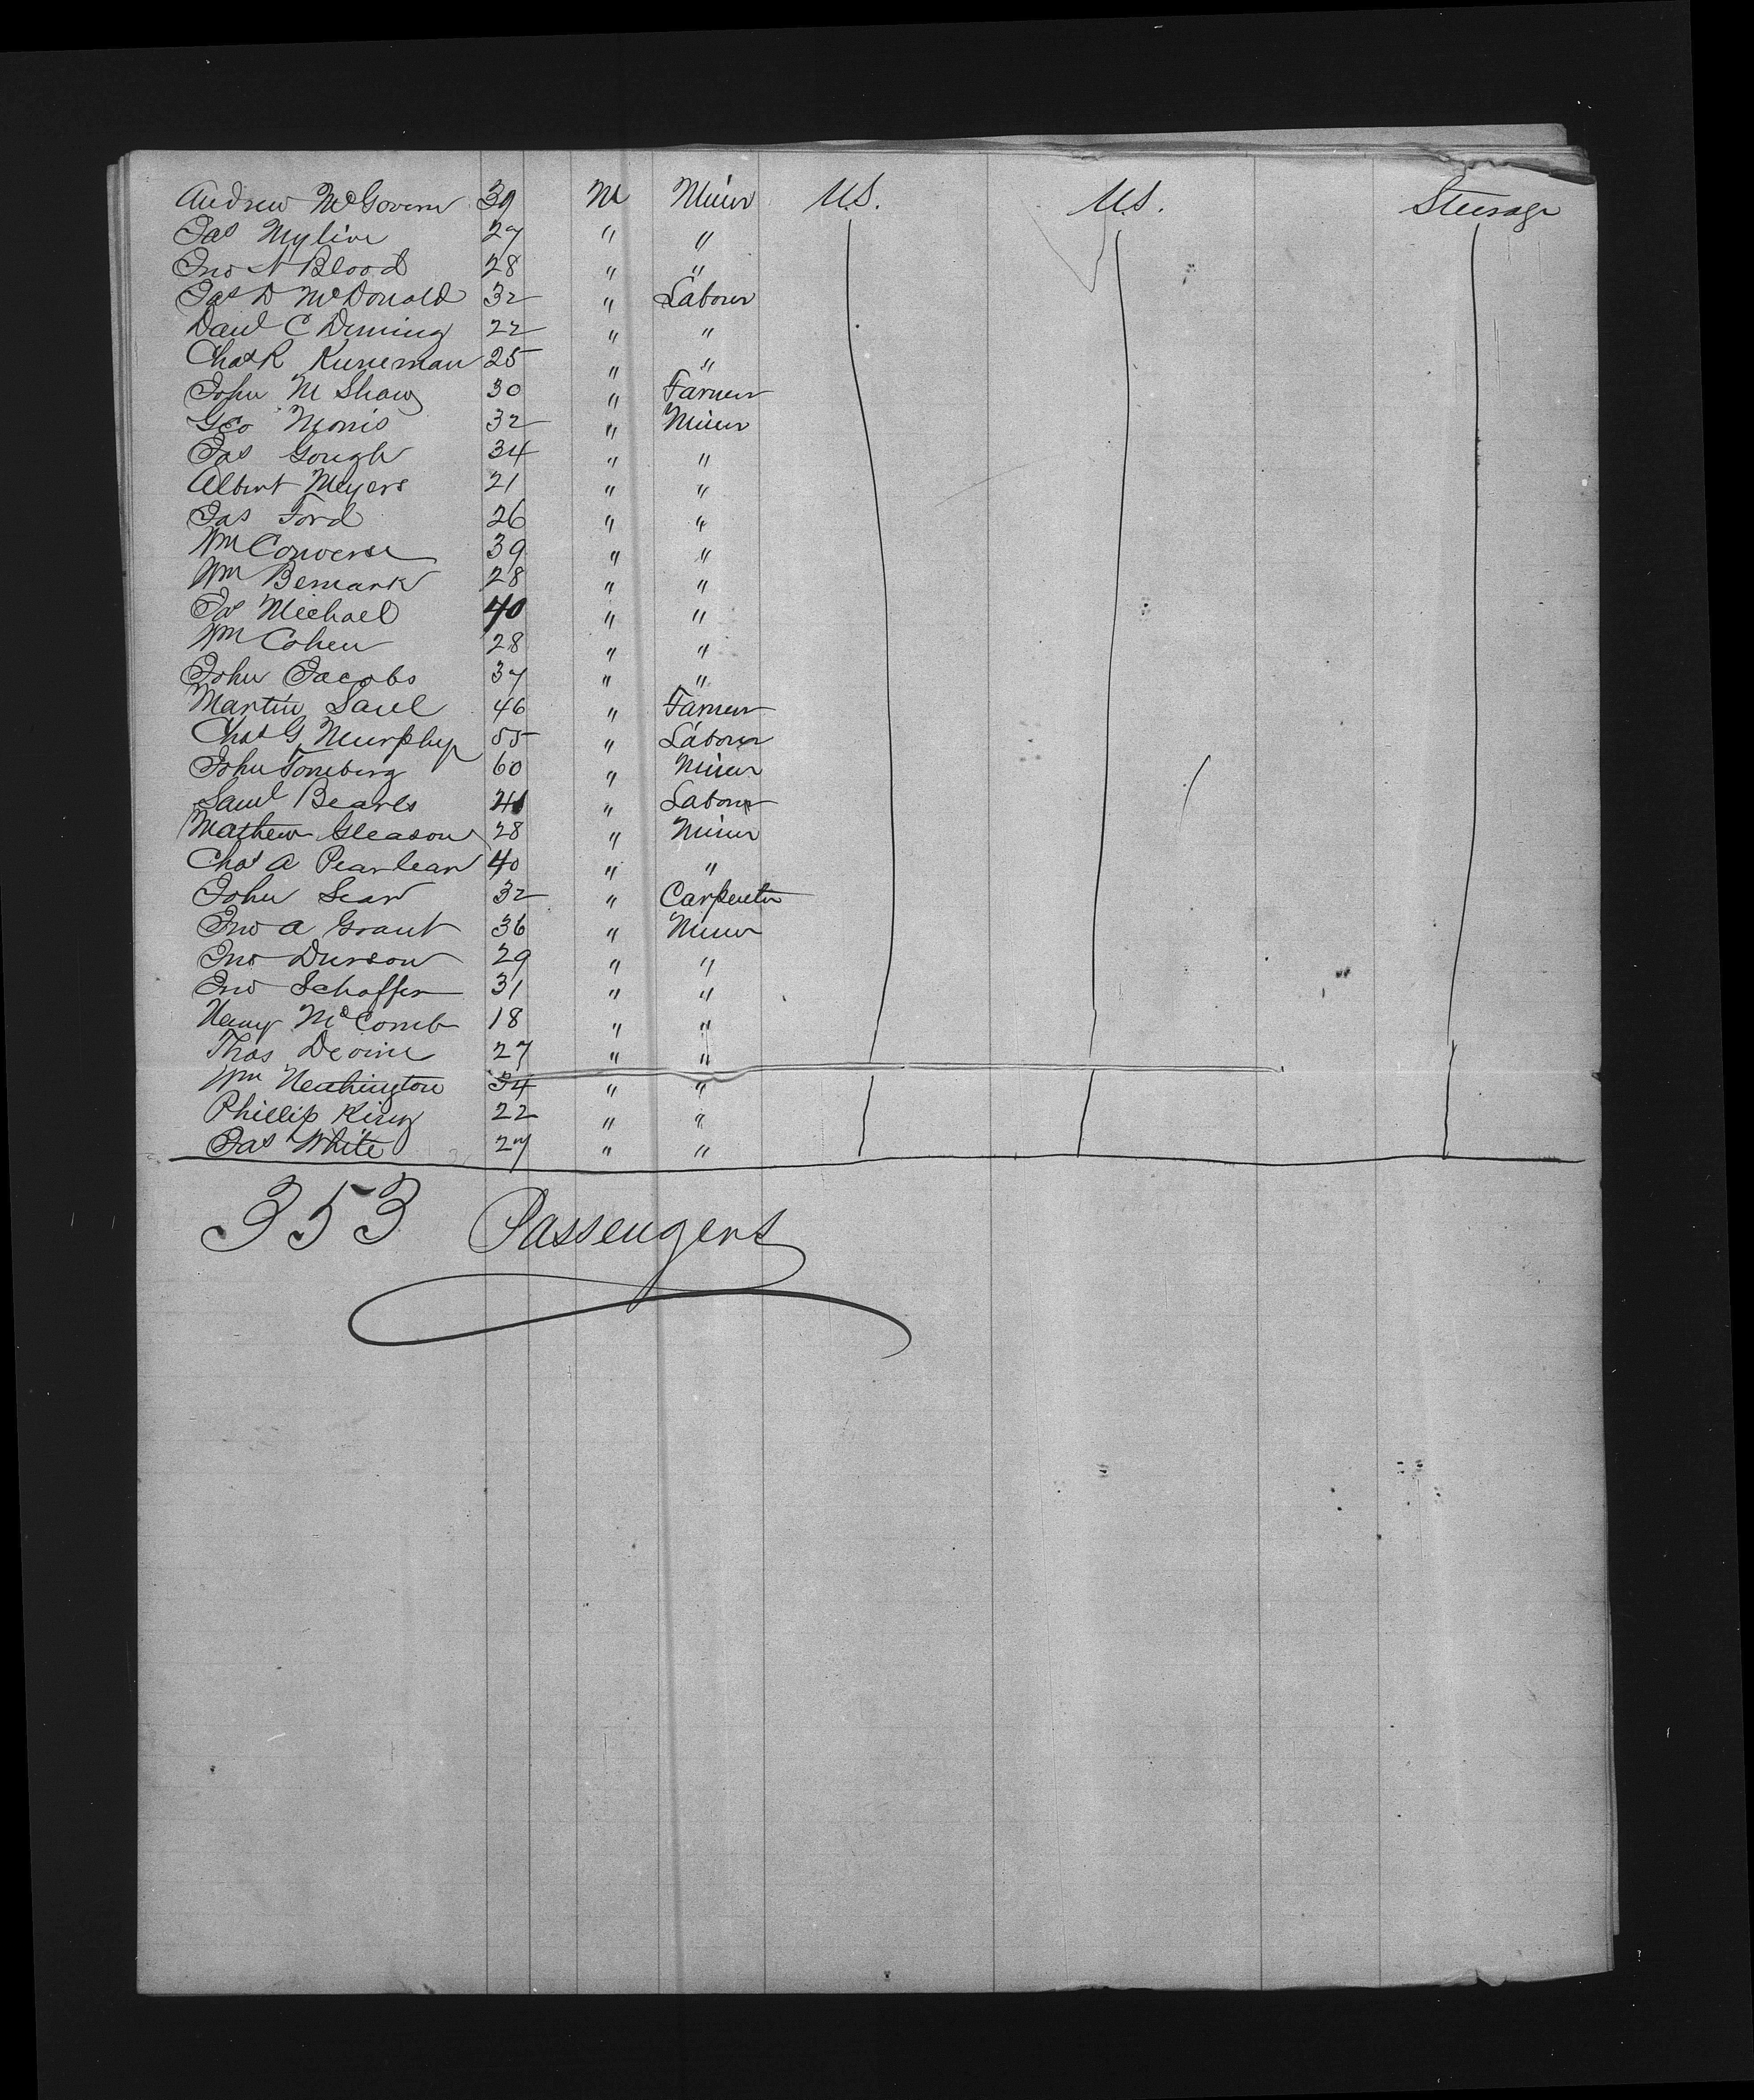 Andrew McGovern 39 M Miner U.S. U.S. Steerage
Jas Mylive 27 " "
Jno N Blood 28 " "
Jas D McDonald 32 " Laborer
Danl C Deming 22 " "
Chas R Kuneman 25 " "
John M Shaw 30 " Farmer
Geo Morris 32 " Miner
Jas Gough 34 " "
Albert Meyers 21 " "
Jas Ford 26 " "
Wm Converse 39 " "
Wm Bemark 28 " "
Jos Michael 40 " "
Wm Cohen 28 " "
John Jacobs 37 " "
Martin Saul 46 " Farmer
Chas G Murphy 55 " Laborer
John Tomberg 60 " Miner
Saml Bearls " Laborer
Mathew Gleason 28 " Miner
Chas A 40 " "
John Sear 32 " Carpenter
Jno A Grant 36 " Miner
Jno Durson 29 " "
Jno Schaffer 31 " "
Henry McComb 18 " "
Thos Devine 27 " "
Wm 34 " "
Phillip King 22 " "
Jas White 27 " "
353 Passengers